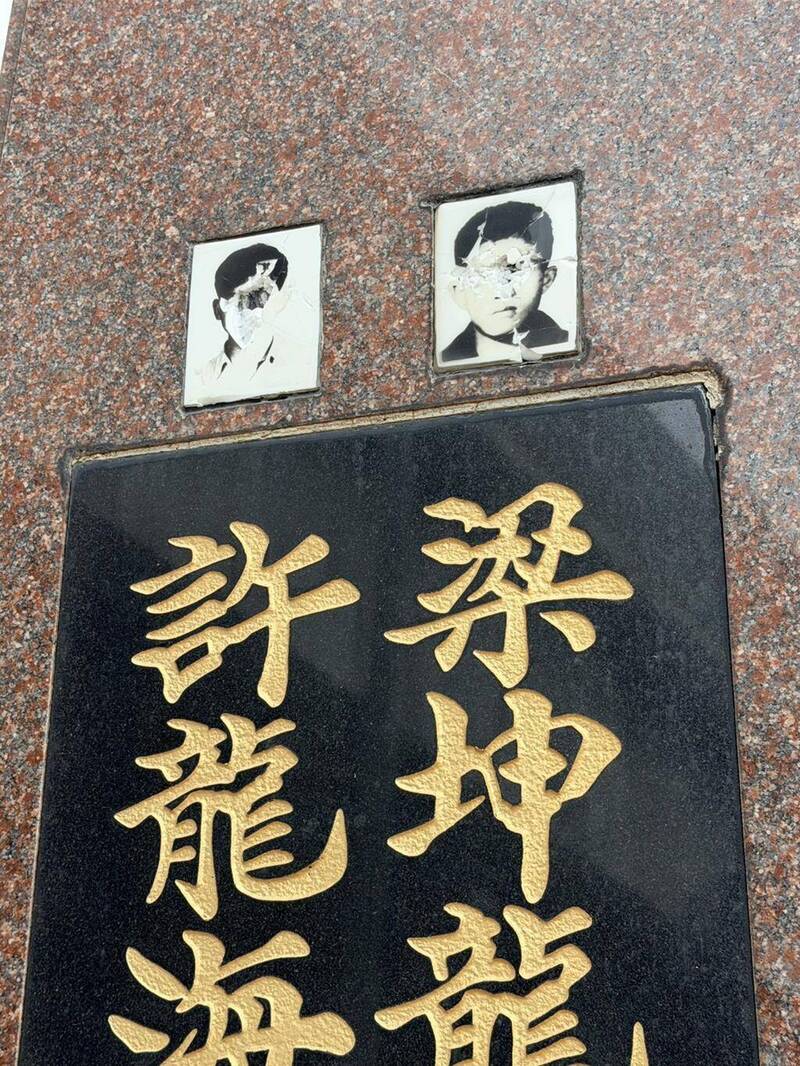 梁坤龍
許龍海